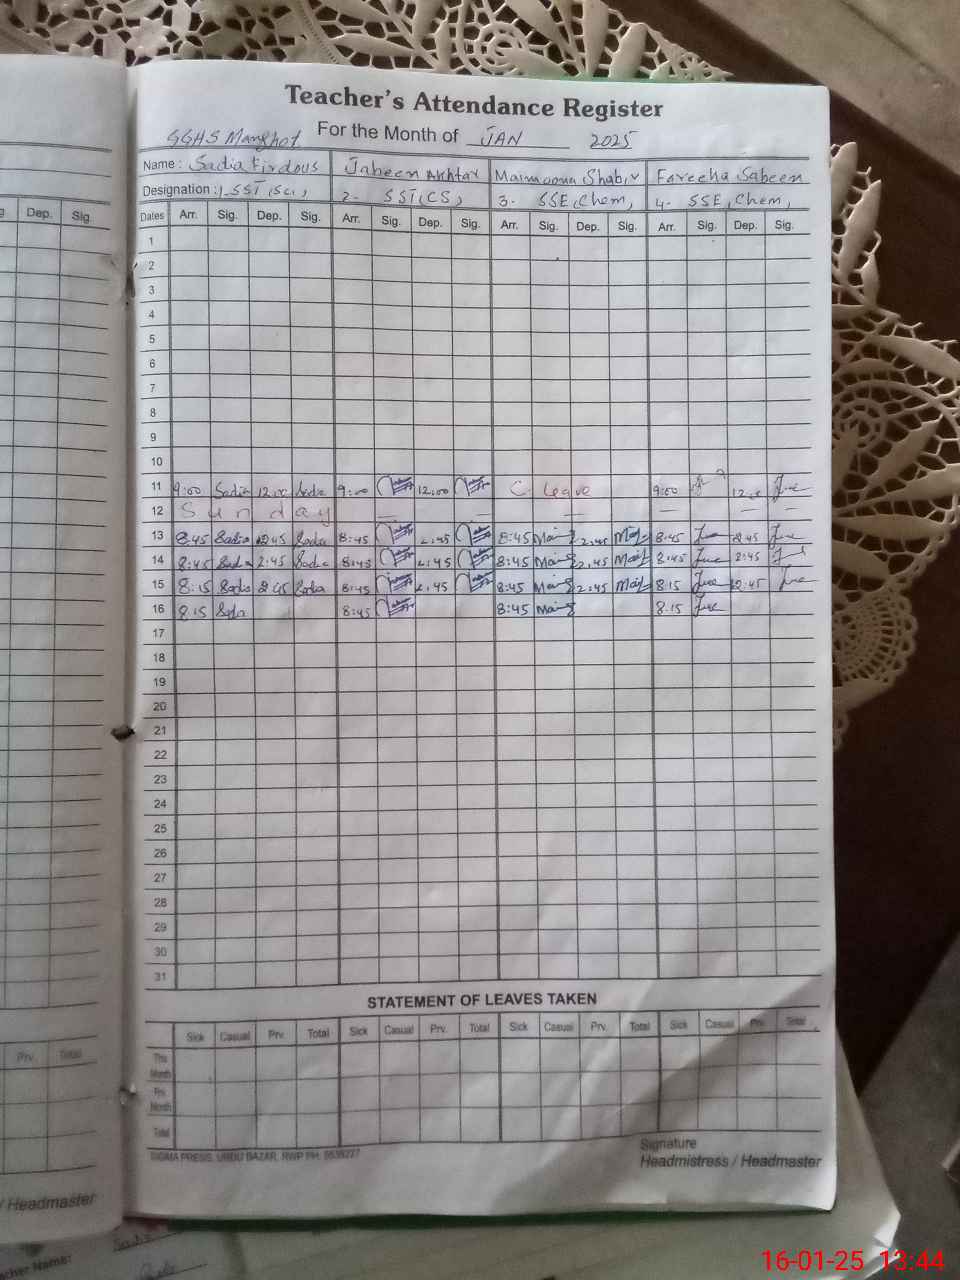 Teacher's Attendance Register
GGHS Manghot For the Month of JAN 2025
Name: Sadia Firdous Jabeen Akhtar Maimoona Shabir Fareeha Sabeen
Designation: 1. SST (Sci) 2. SST(CS) 3. SSE(Chem) 4. SSE(Chem)
g Dep. Sig.
Dates Arr. Sig. Dep. Sig. Arr. Sig. Dep. Sig. Arr. Sig. Dep. Sig. Arr. Sig. Dep. Sig.
1
2
3
4
5
6
7
8
9
10
11 9:00 Sadia 12:00 Sadia 9:00 12:00 C. Leave 9:00 12:00
12 Sunday — — — — —
13 8:45 Sadia 2:45 Sadia 8:45 2:45 8:45 2:45 8:45 2:45
14 8:45 Sadia 2:45 Sadia 8:45 2:45 8:45 2:45 8:45 2:45
15 8:15 Sadia 2:45 Sadia 8:45 2:45 8:45 2:45 8:15 2:45
16 8:15 Sadia 8:45 8:45 8:15
17
18
19
20
21
22
23
24
25
26
27
28
29
30
31
STATEMENT OF LEAVES TAKEN
Sick Casual Prv. Total Sick Casual Prv. Total Sick Casual Prv. Total Sick Casual Prv. Total
Prv. Total
This Month
Prv. Month
Total
SIGMA PRESS, URDU BAZAR, RWP PH:
Signature
Headmistress / Headmaster
/ Headmaster
acher Name:
16-01-25 13:44